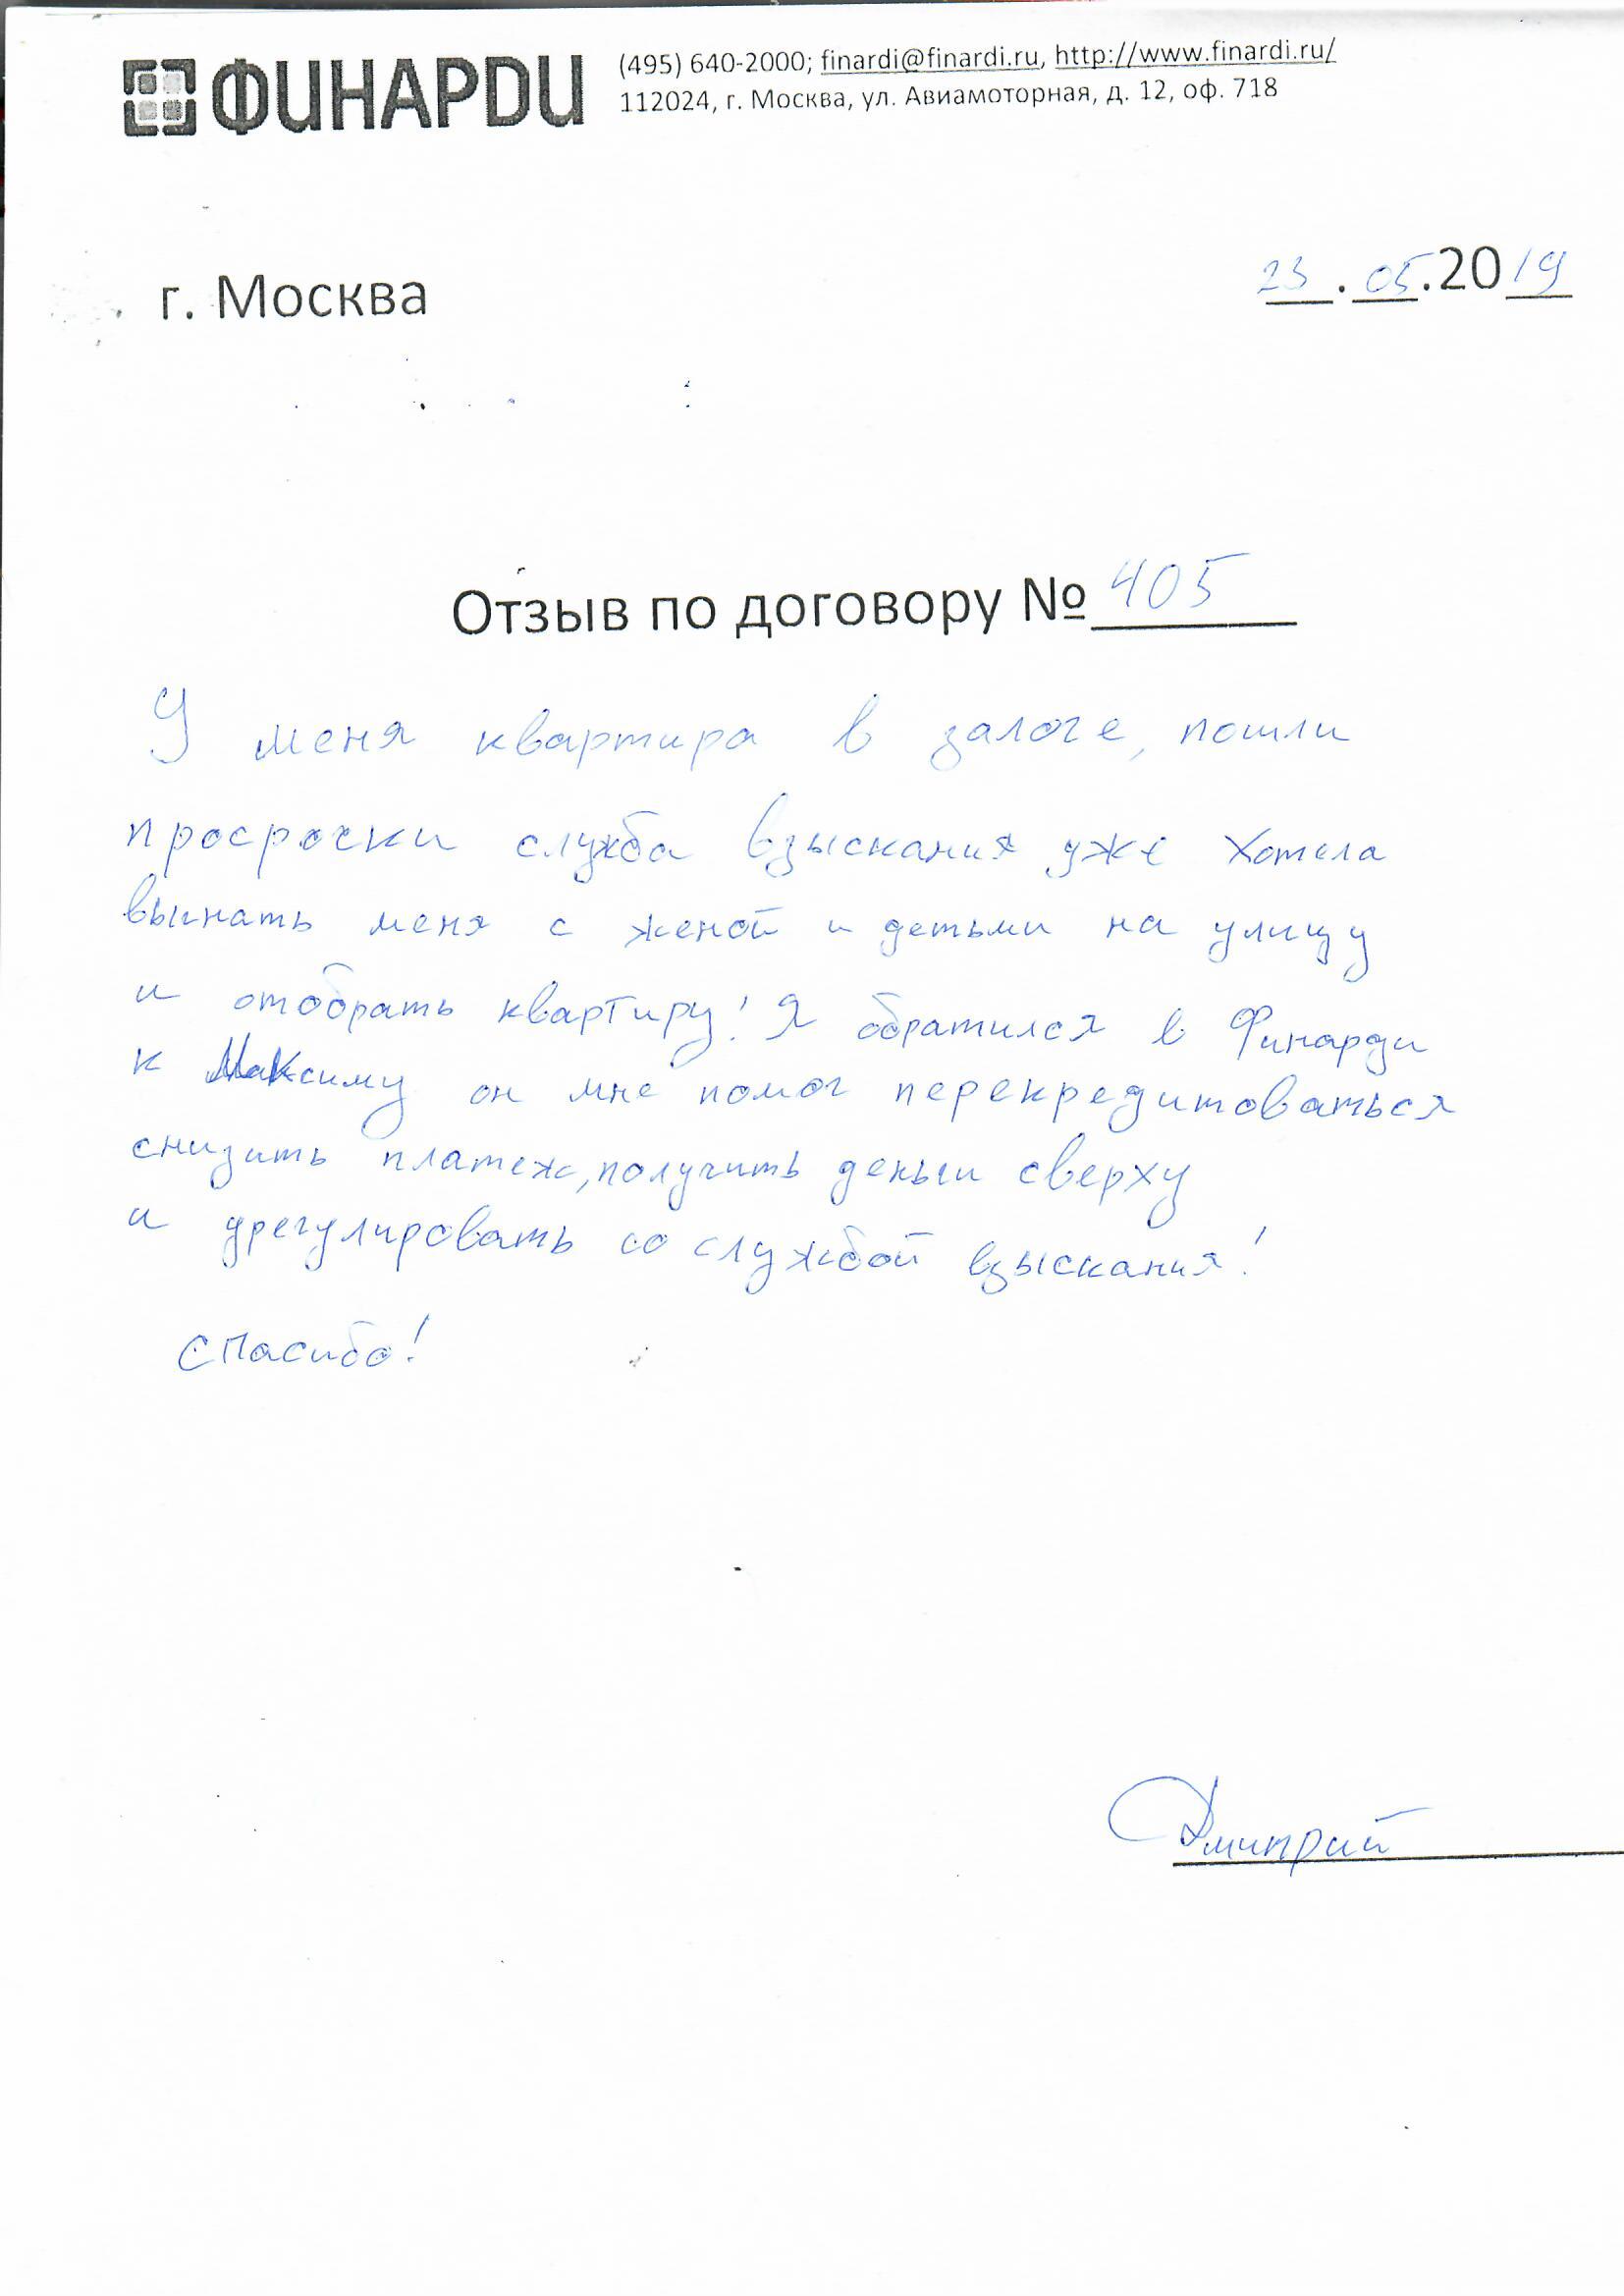 ФИНАРДИ
(495) 640-2000; finardi@finardi.ru, http://www.finardi.ru/
112024, г. Москва, ул. Авиамоторная, д. 12, оф. 718
г. Москва
23.05.2019
Отзыв по договору № 405
У меня квартира в залоге, пошли
просрочки служба взыскания уже хотела
выгнать меня с женой и детьми на улицу
и отобрать квартиру! Я обратился в Финарди
к Максиму он мне помог перекредитоваться
снизить платеж, получить деньги сверху
и урегулировать со службой взыскания!
Спасибо!
Дмитрий